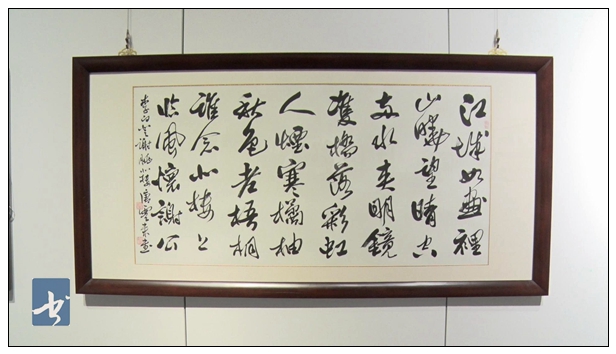 江城如畫裡
山曉望晴空
兩水夾明鏡
雙橋落彩虹
人煙寒橘柚
秋色老梧桐
誰念北樓上
臨風懷謝公
李白登謝朓北樓
书